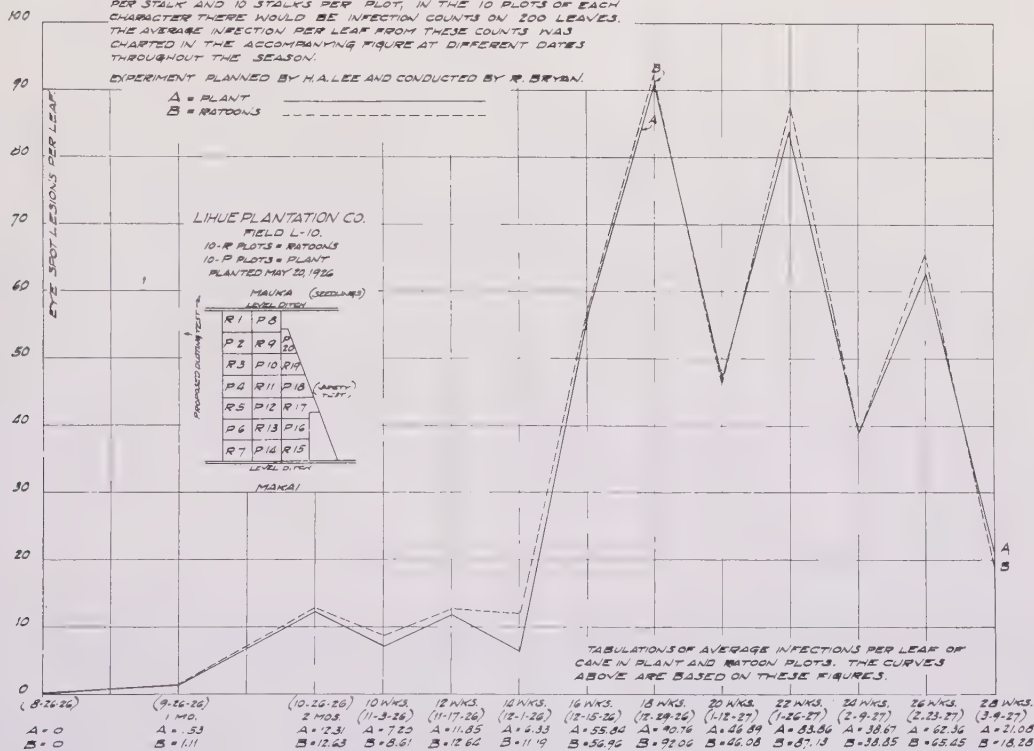 PER STALK AND 10 STALKS PER PLOT, IN THE 10 PLOTS OF EACH
CHARACTER THERE WOULD BE INFECTION COUNTS ON 200 LEAVES.
THE AVERAGE INFECTION PER LEAF FROM THESE COUNTS WAS
CHARTED IN THE ACCOMPANYING FIGURE AT DIFFERENT DATES
THROUGHOUT THE SEASON.
EXPERIMENT PLANNED BY H.A. LEE AND CONDUCTED BY R. BRYAN.
A = PLANT
B = RATOONS
100
90
80
70
60
50
40
30
20
10
0
EYE SPOT LESIONS PER LEAF.
LIHUE PLANTATION CO.
FIELD L-10.
10-R PLOTS = RATOONS
10-P PLOTS = PLANT
PLANTED MAY 20, 1926
MAUKA (SEEDLINGS)
LEVEL DITCH
R 1 P 8
P 2 R 9 P 20
R 3 P 10 R 19
P 4 R 11 P 18
R 5 P 12 R 17
P 6 R 13 P 16
R 7 P 14 R 15
LEVEL DITCH
MAKAI
PROPOSED TEST
TEST
B
A
A
B
TABULATIONS OF AVERAGE INFECTIONS PER LEAF OF
CANE IN PLANT AND RATOON PLOTS. THE CURVES
ABOVE ARE BASED ON THESE FIGURES.
(8-26-26) (9-26-26) (10-26-26) 10 WKS. 12 WKS. 14 WKS. 16 WKS. 18 WKS. 20 WKS. 22 WKS. 24 WKS. 26 WKS. 28 WKS.
1 MO. 2 MOS. (11-3-26) (11-17-26) (12-1-26) (12-15-26) (12-29-26) (1-12-27) (1-26-27) (2-9-27) (2-23-27) (3-9-27)
A = 0 A = .53 A = 12.31 A = 7.20 A = 11.85 A = 6.33 A = 55.84 A = 90.76 A = 46.89 A = 83.86 A = 38.67 A = 62.36 A = 21.02
B = 0 B = 1.11 B = 12.63 B = 8.61 B = 12.64 B = 11.19 B = 56.96 B = 92.06 B = 46.08 B = 87.13 B = 38.85 B = 65.45 B = 18